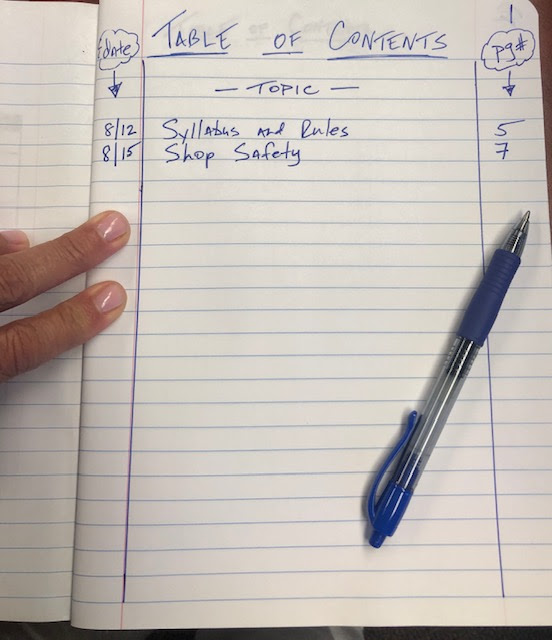 1
date TABLE OF CONTENTS pg#
— TOPIC —
8/12 Syllabus and Rules 5
8/15 Shop Safety 7